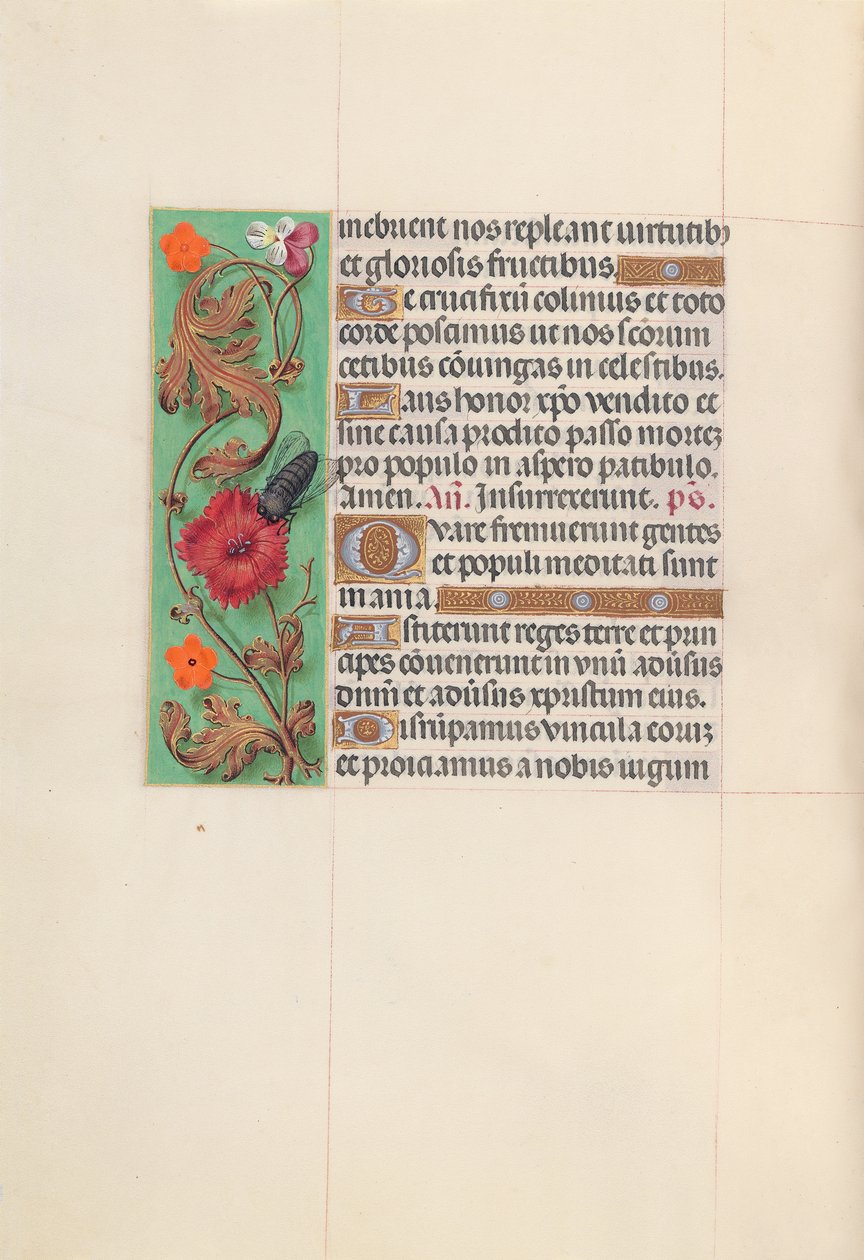 inebrient nos repleant uirtutibꝫ
et gloriosis fructibus.
Te crucifixū colimus et toto
corde poscimus ut nos scōrum
cetibus cōuingas in celestibus.
Laus honor xp̄o vendito et
sine causa prodito passo mortez
pro populo in aspero patibulo.
Amen. An̄. Insurrexerunt. ps̄.
Quare fremuerunt gentes
et populi meditati sunt
inania.
Astiterunt reges terre et prin
cipes cōuenerunt in vnū adūsus
dnm̄ et adūsus xpristum eius.
Disrūpamus vincula eorūz
et proiciamus a nobis iugum